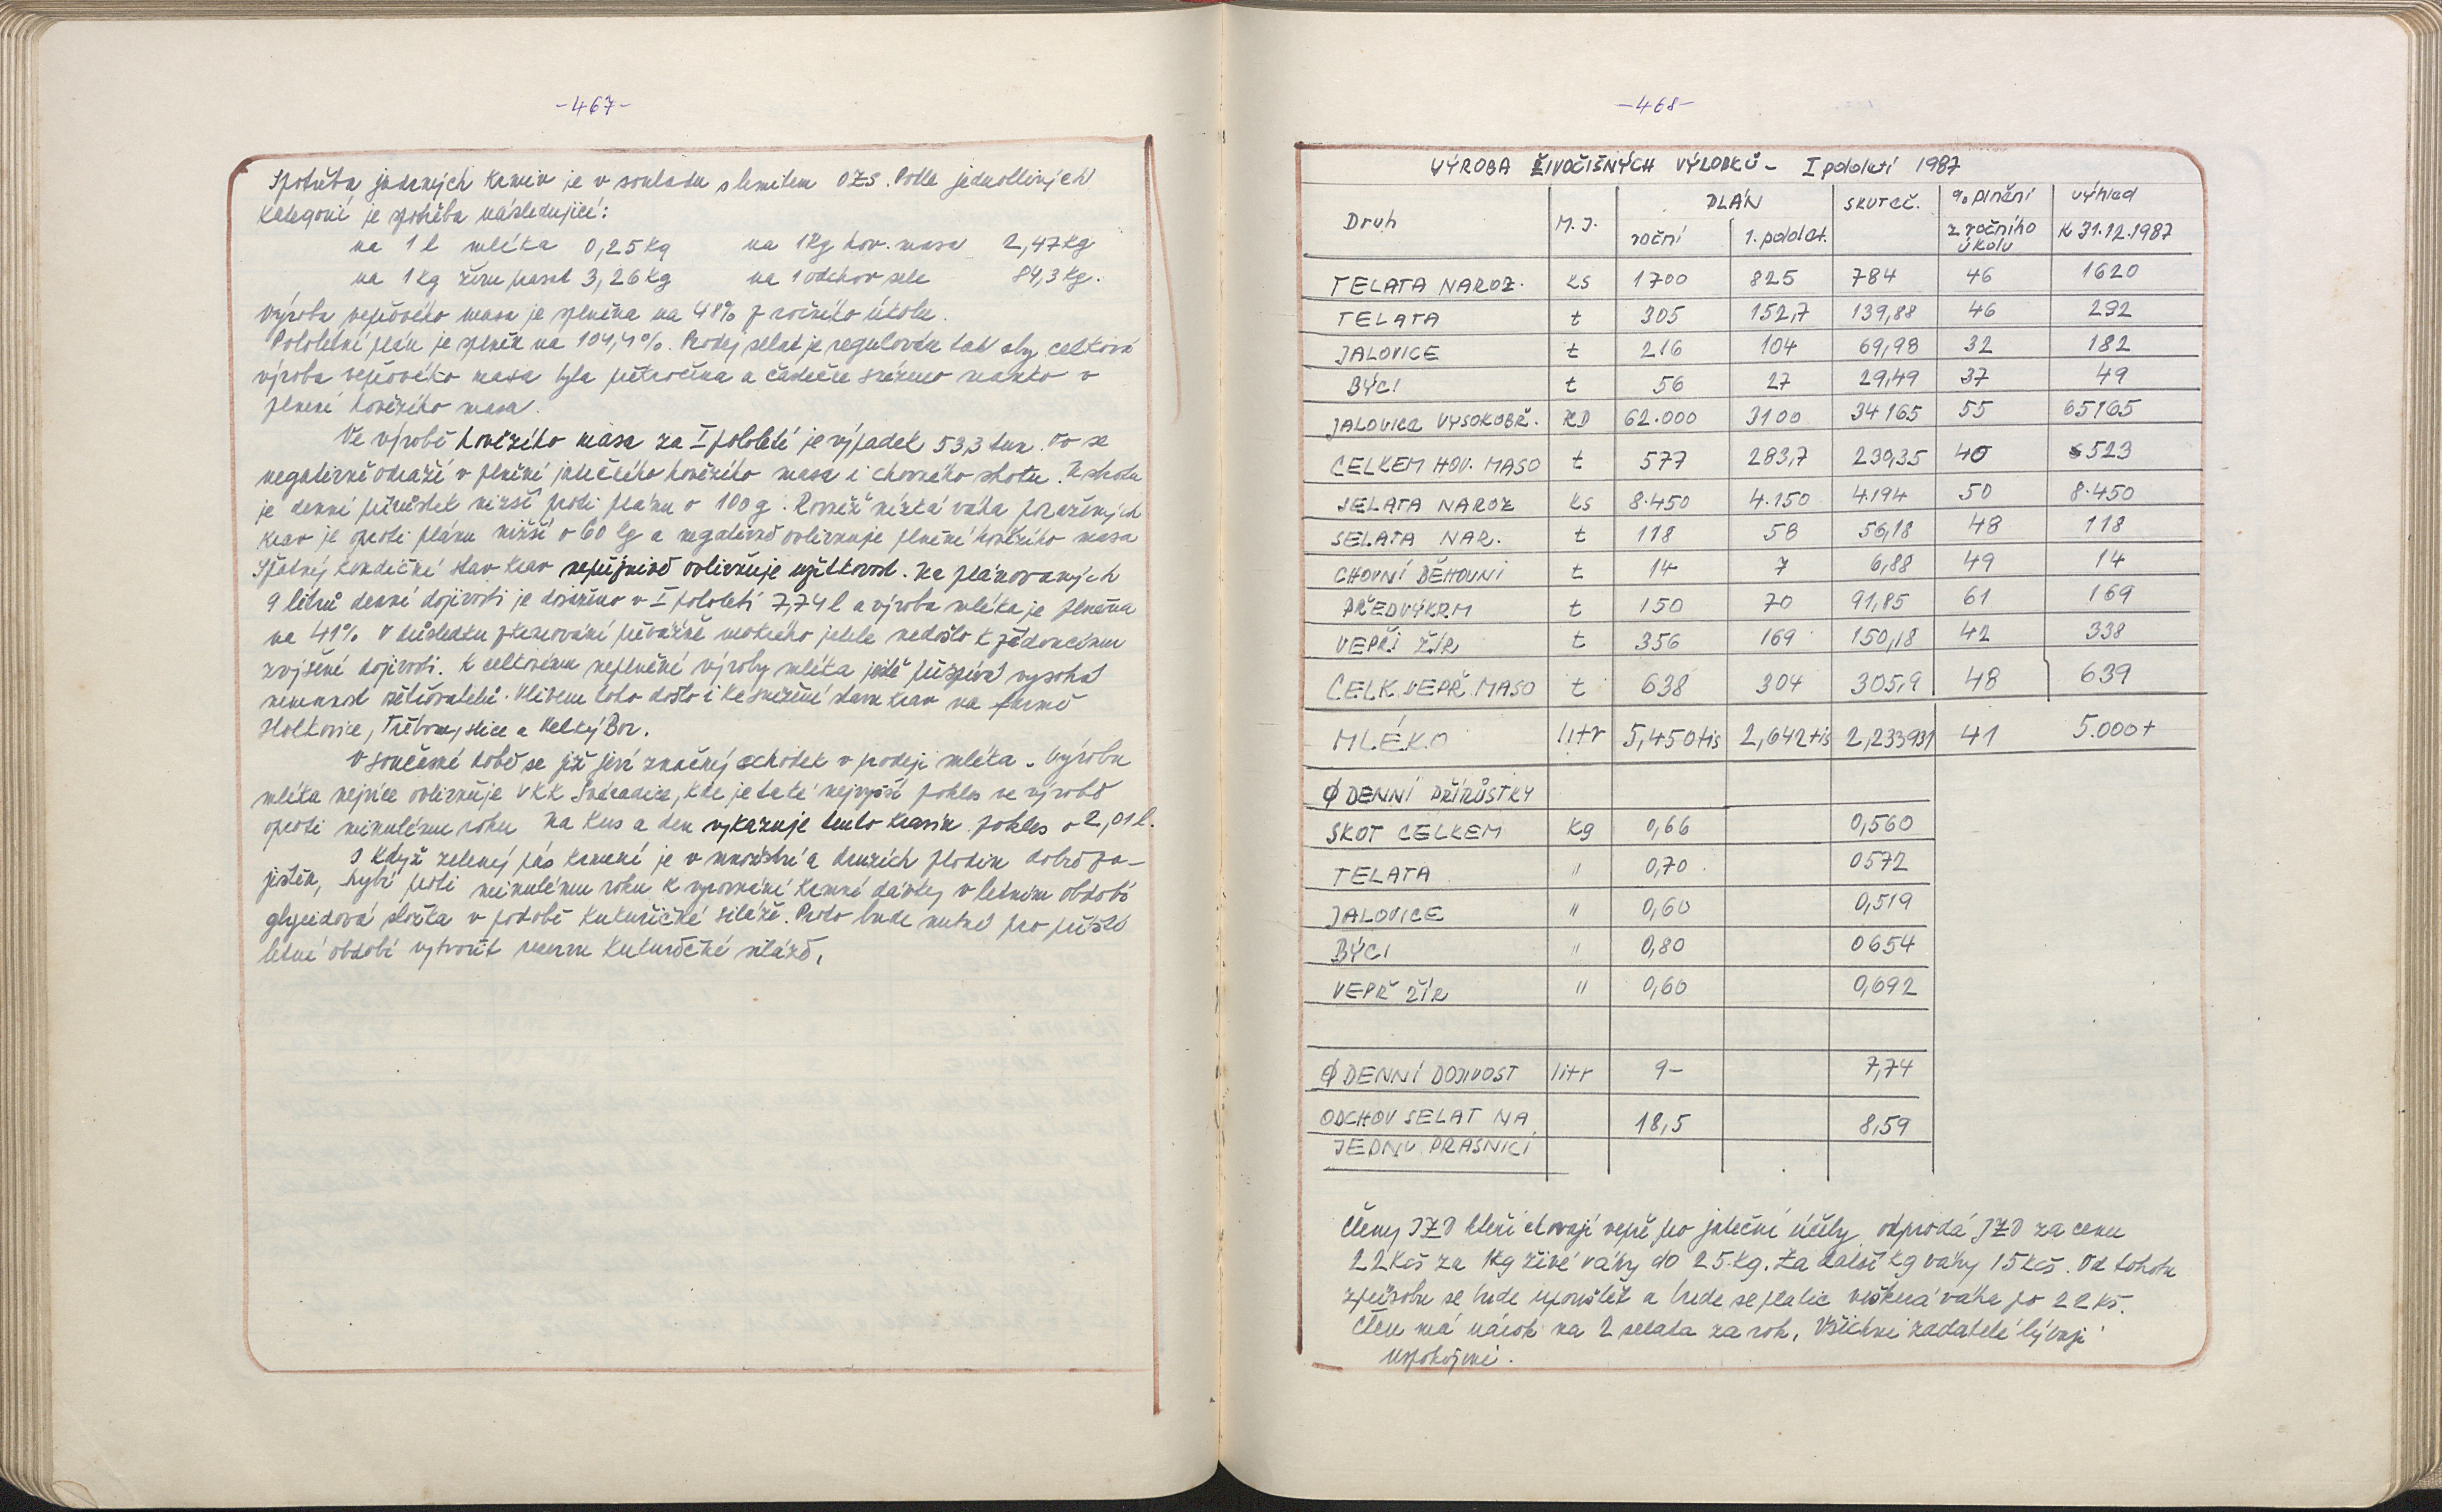 -467-
Spotřeba jaderných krmiv je v souladu s limitem OZS. Podle jednotlivých
kategorií je spotřeba následující:
na 1 l mléka 0,25 kg na 1kg hov. masa 2,47kg
na 1 kg žíru prasat 3,26kg na 1 odchov sele 84,3 kg.
Výroba vepřového masa je plněna na 48% z ročního úkolu.
Pololetní plán je splněn na 104,4%. Prodej selat je regulován tak aby celková
výroba vepřového masa byla a částečně sníženo manko v
plnění hovězího masa.
Ve výrobě hovězího masa za I pololetí je výpadek 53,3 tun. To se
negativně odráží v plnění jatečného hovězího masa i chovného skotu. U skotu
je denní přírůstek nižší proti plánu o 100 g. Rovněž nízká váha poražených
krav je oproti plánu nižší o 60 kg a negativně ovlivňuje plnění hovězího masa
Špatný kondiční stav krav nepříznivě ovlivňuje užitkovost. Na plánovaných
9 litrů denní dojivosti je dosaženo v I pololetí 7,74 l a výroba mléka je plněna
na 41% V důsledku zkrmování převážně mokrého jetele nedošlo k žádoucímu
zvýšení dojivosti. K celkovému neplnění výroby mléka ještě přispívá vysoká
nemocnost ošetřovatelů. Vlivem toho došlo i ke snížení stavu krav na farmě
Holkovice, Třebomyslice a Velký Bor.
V současné době se již jeví značný schodek v prodeji mléka. Výrobu
mléka nejvíce ovlivňuje VKK Svéradice, kde je také nejvyšší pokles ve výrobě
oproti minulému roku na kus a den vykazuje tento kravín pokles o 2,01 l.
I když zelený pás krmení je v množství a druzích plodin dobře za-
jištěn, chybí proti minulému roku k vyrovnání krmné dávky v letním období
glycidová složka v podobě kukuřičné siláže. Proto bude nutné pro příští
letní období vytvořit rezervu kukuřičné siláže.
-468-
VÝROBA ŽIVOČIŠNÝCH VÝROBKŮ - I pololetí 1987
Druh M.J. PLÁN SKUTEČ. % plnění výhled
roční 1. pololet. z ročního úkolu K 31.12.1987
TELATA NAROZ. KS 1700 825 784 46 1620
TELATA t 305 152,7 139,88 46 292
JALOVICE t 216 104 69,98 32 182
BÝCI t 56 27 29,49 37 49
JALOVICE VYSOKOBŘ. KD 62.000 3100 34165 55 65165
CELKEM HOV. MASO t 577 283,7 230,35 40 523
SELATA NAROZ KS 8.450 4.150 4.194 50 8.450
SELATA NAR. t 118 58 56,18 48 118
CHOVNÍ BĚHOUNI t 14 7 6,88 49 14
PŘEDVÝKRM t 150 70 91,85 61 169
VEPŘI ŽÍR t 356 169 150,18 42 338
CELK VEPŘ. MASO t 638 304 305,9 48 639
MLÉKO litr 5,450tis 2,642tis 2,233931 41 5.000t
Ø DENNÍ PŘÍRŮSTKY
SKOT CELKEM kg 0,66 0,560
TELATA " 0,70 0572
JALOVICE " 0,60 0,519
BÝCI " 0,80 0654
VEPŘ ŽÍR " 0,60 0,692
Ø DENNÍ DOJIVOST litr 9- 7,74
ODCHOV SELAT NA 18,5 8,59
JEDNU PRASNICI
Členy JZD kteří chovají vepře pro jateční účely odprodá JZD za cenu
22Kčs za 1kg živé váhy do 25 kg. Za další kg váhy 15 Kčs. Od tohoto
způsobu se bude upouštět a bude se platit veškerá váha po 22 Kčs.
Člen má nárok na 2 selata za rok. Všichni žadatelé bývají
uspokojeni.